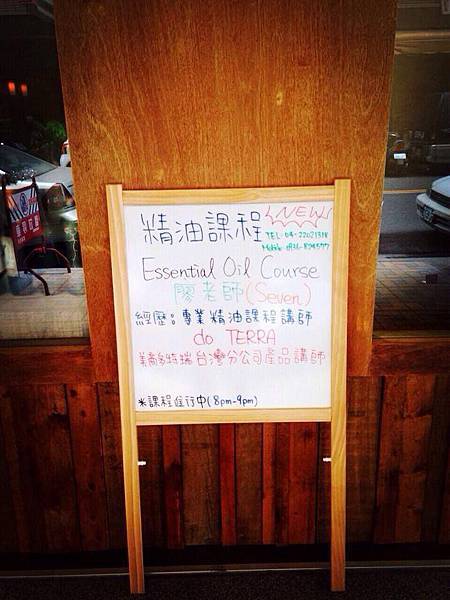 精油課程 NEW
TEL: 04-22021318
Essential Oil Course
廖老師(Seven)
經歷：專業精油課程講師
do TERRA
美商多特瑞台灣分公司產品講師
*課程進行中(8pm-9pm)